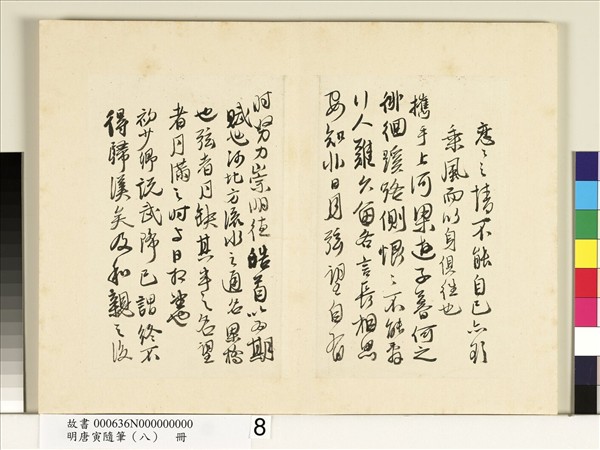 戀〻之情不能自已亦欲
乘風而以身俱往也
攜手上河梁遊子暮何之
徘徊蹊路側恨〻不能辭
行人難久留各言長相思
安知非日月弦望自有
時努力崇明德皓首以為期
賦也河北方流水之通名梁橋
也弦者月缺其半之名望
者月滿之時與日相望也
初少卿說武降已謂終不
得歸漢矣及和親之後
故書 000636N000000000
明唐寅隨筆（八） 冊
8